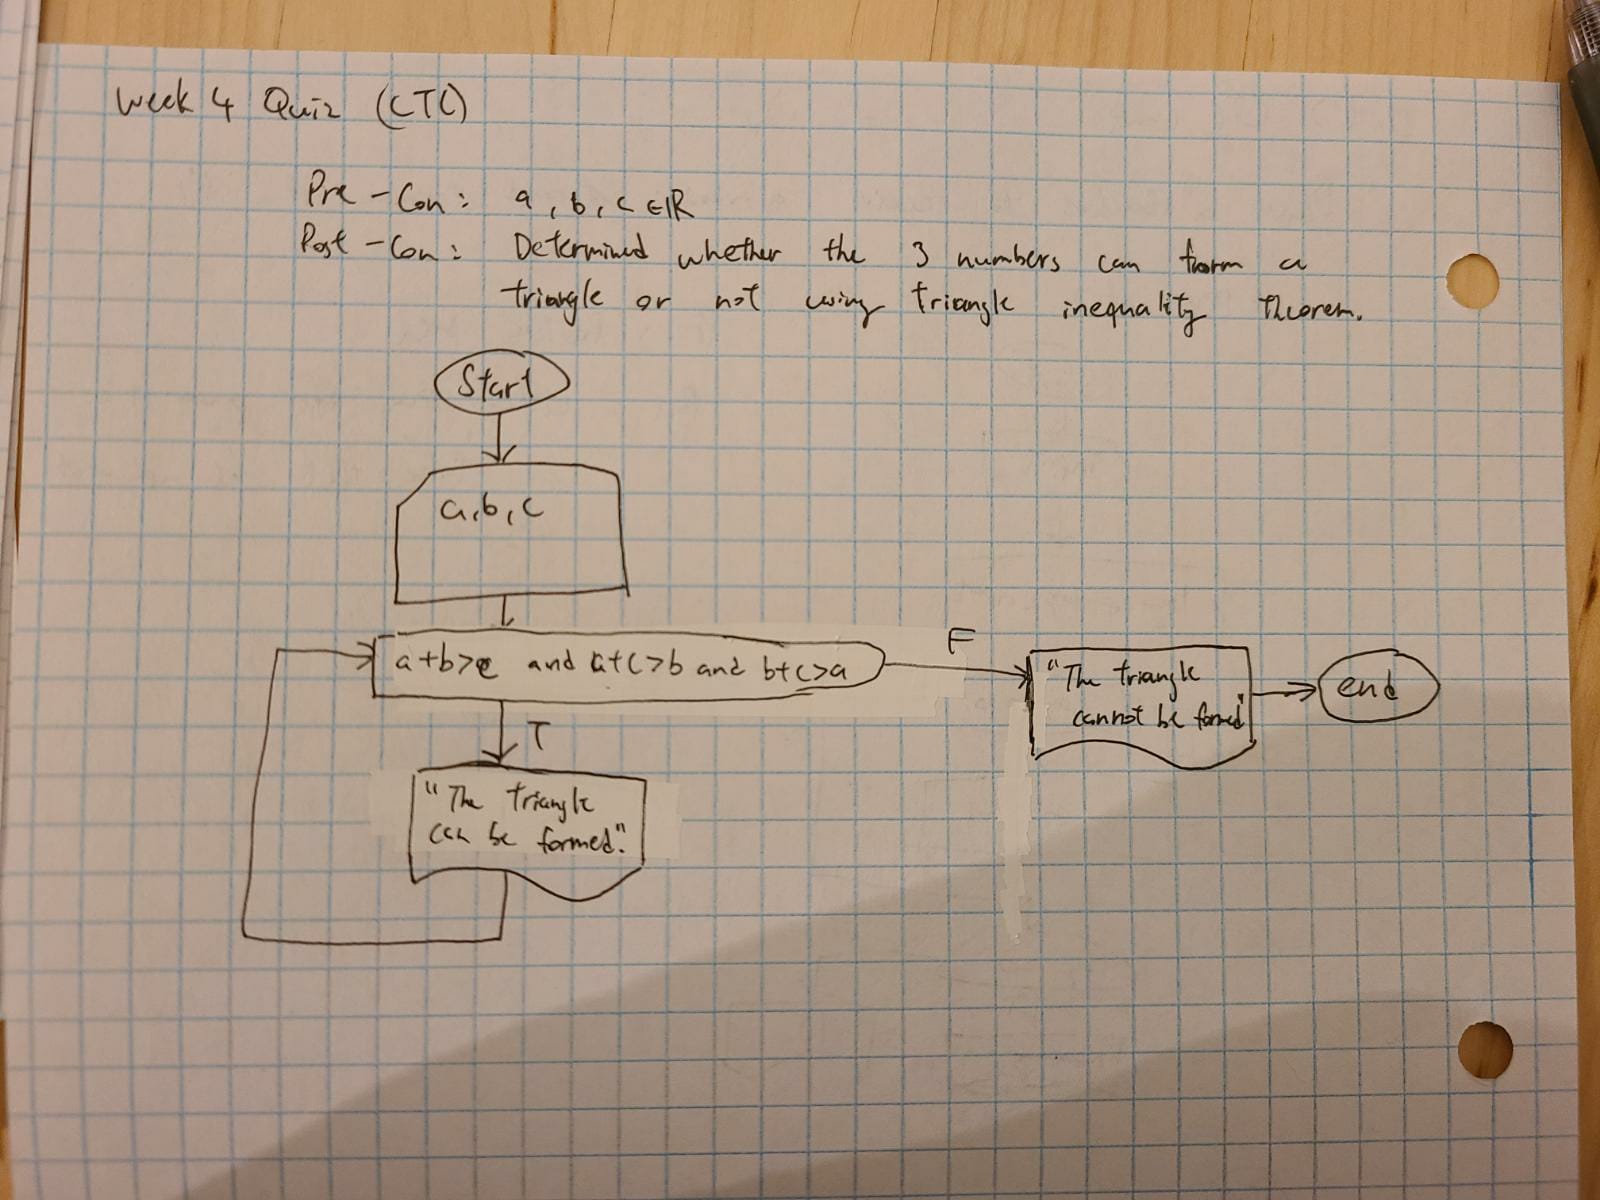 Week 4 Quiz (CTC)
Pre-Con: a, b, c ∈ ℝ
Post-Con: Determined whether the 3 numbers can form a
triangle or not using triangle inequality theorem.
Start
a, b, c
a+b>c and a+c>b and b+c>a
F
"The triangle
cannot be formed"
end
T
"The triangle
can be formed."